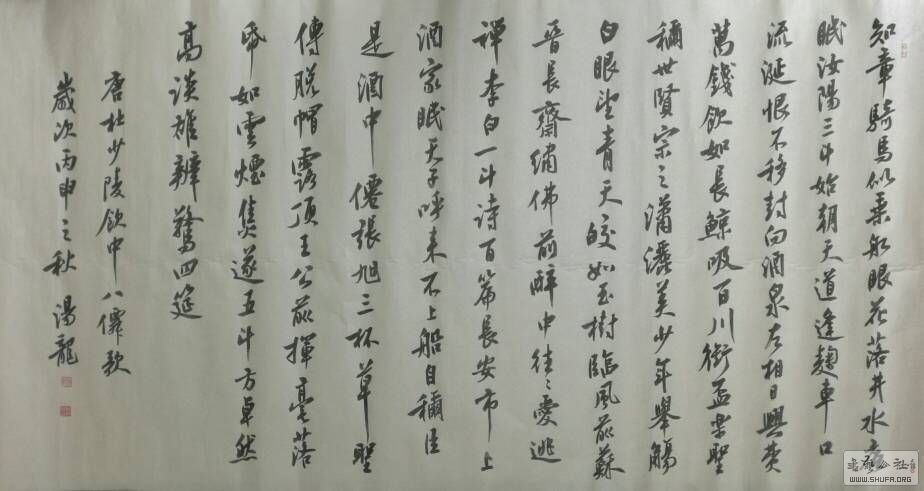 知章騎馬似乗船眼花落井水底
眠汝陽三斗始朝天道逢麹車口
流涎恨不移封向酒泉左相日興費
萬錢飲如長鯨吸百川銜盃樂聖
稱世賢宗之瀟灑美少年舉觴
白眼望青天皎如玉樹臨風前蘇
晉長齋繡佛前醉中往〻愛逃
禪李白一斗詩百篇長安市上
酒家眠天子呼来不上船自稱臣
是酒中僊張旭三杯草聖
傳脱帽露頂王公前揮毫落
紙如雲煙焦遂五斗方卓然
高談雄辯驚四筵
唐杜少陵飲中八僊歌
歲次丙申之秋 湯龍
书法公社
WWW.SHUFA.ORG